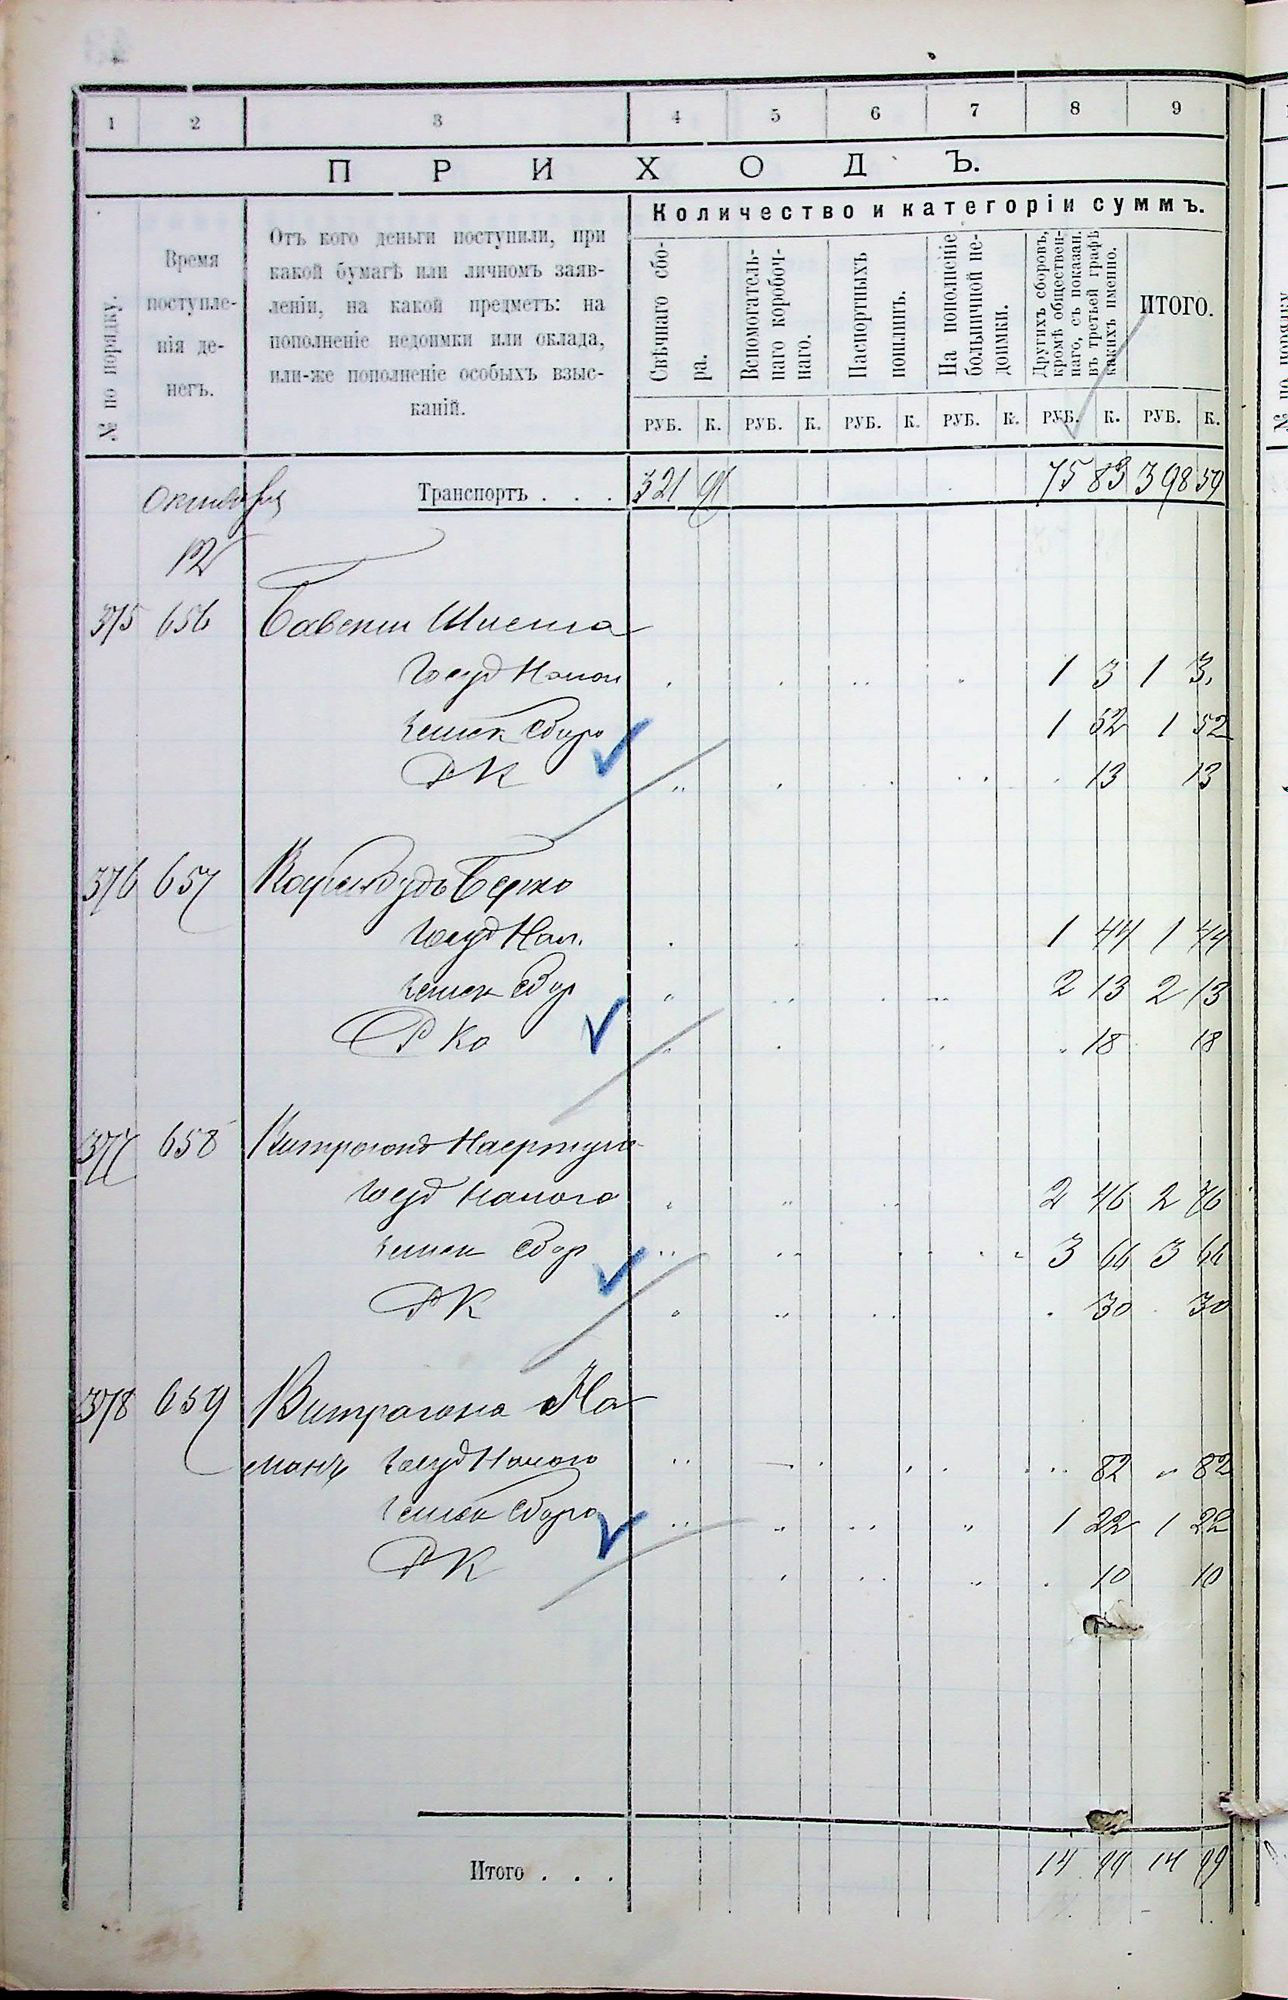 1 2 3 4 5 6 7 8 9
ПРИХОДЪ.
№ по порядку.
Время
поступле-
нія де-
негъ.
Отъ кого деньги поступили, при
какой бумагѣ или личномъ заяв-
леніи, на какой предметъ: на
пополненіе недоимки или оклада,
или-же пополненіе особыхъ взыс-
каній.
Количество и категоріи суммъ.
Свѣчнаго сбо-
ра.
Вспомогатель-
наго коробоч-
наго.
Паспортныхъ
пошлинъ.
На пополненіе
больничной не-
доимки.
Другихъ сборовъ,
кромѣ общественн-
наго, съ показан.
въ третьей графѣ
какихъ именно.
ИТОГО.
РУБ. К. РУБ. К. РУБ. К. РУБ. К. РУБ. К. РУБ. К.
октября Транспортъ . . . 321 91 75 83 398 59
12
375 656
Госуд Налог 1 3 1 3
земск сбора 1 52 1 52
РК 13 13
376 657 Берко
Госуд Нал. 1 44 1 44
земск сбор 2 13 2 13
Р Ко 18 18
377 658
Госуд Налога 2 46 2 46
земск сбор 3 66 3 66
РК 30 30
378 659 Витрагона На
манъ Госуд Налого 82 82
земск сбора 1 22 1 22
РК 10 10
Итого . . . 14 99 14 99